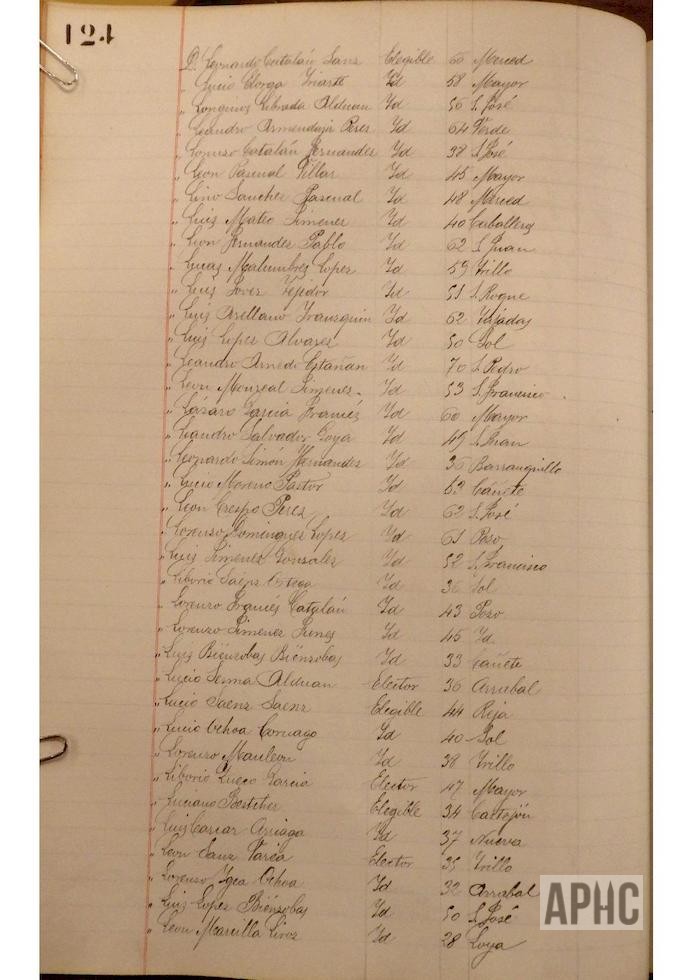 124
D. Leonardo Catalán Sanz Elegible 60 Merced
" Lucio Chorga Iriarte Id 58 Mayor
" Longinos Librada Alduan Id 56 S. José
" Leandro Armendariz Peres Id 64 Verde
" Lorenzo Catalán Fernandez Id 38 S. José
" Leon Pascual Villar Id 45 Mayor
" Lino Sanchez Pascual Id 48 Merced
" Luis Mateo Jimenez Id 40 Caballeros
" Leon Fernandez Pablo Id 62 S. Juan
" Lucas Malumbres Lopez Id 59 Trillo
" Luis Jover Tejedor Id 51 S. Roque
" Luis Arellano Id 62 Tejadas
" Luis Lopez Alvarez Id 50 Sol
" Leandro Arnedo Estañan Id 70 S. Pedro
" Leon Monreal Jimenez Id 53 S. Francisco
" Lázaro Garcia Francés Id 60 Mayor
" Leandro Salvador Goya Id 49 S. Juan
" Leonardo Simón Hernandez Id 35 Barranquillo
" Lucio Moreno Pastor Id 63 Cañete
" León Crespo Perez Id 62 S. José
" Lorenzo Dominguez Lopez Id 61 Pozo
" Luis Jimenez Gonzalez Id 52 S. Francisco
" Liborio Saenz Ortega Id 36 Sol
" Lorenzo Francés Catalán Id 43 Pozo
" Lorenzo Jimenez Id 45 Id
" Luis Biénzobas Biénzobas Id 33 Cañete
" Lucio Serma Alduan Elector 36 Arrabal
" Lucio Saenz Saenz Elegible 44 Reja
" Lucio Ochoa Id 40 Sol
" Lorenzo Mauleon Id 38 Trillo
" Liborio Garcia Elector 47 Mayor
" Luciano Elegible 34 Castejón
" Luis Arriaga Id 37 Nueva
" Leon Sanz Varea Elector 35 Trillo
" Lorenzo Ygea Ochoa Id 32 Arrabal
" Luis Lopez Biénzobas Id 50 S. José
" Leon Marcilla Liroz Id 28 Goya
APHC